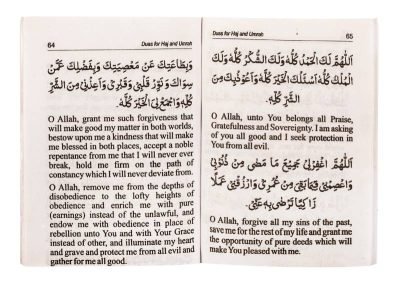 64
Duas for Haj and Umrah
وَبِطَاعَتِكَ عَنْ مَعْصِيَتِكَ وَبِفَضْلِكَ عَمَّنْ
سِوَاكَ وَنَوِّرْ قَلْبِيْ وَقَبْرِيْ وَأَعِذْنِيْ مِنَ الشَّرِّ
كُلِّهِ وَاجْمَعْ لِيَ الْخَيْرَ كُلَّهُ.
O Allah, grant me such forgiveness that
will make good my matter in both worlds,
bestow upon me a kindness that will make
me blessed in both places, accept a noble
repentance from me that I will never ever
break, hold me firm on the path of
constancy which I will never deviate from.
O Allah, remove me from the depths of
disobedience to the lofty heights of
obedience and enrich me with pure
(earnings) instead of the unlawful, and
endow me with obedience in place of
rebellion unto You and with Your Grace
instead of other, and illuminate my heart
and grave and protect me from all evil and
gather for me all good.
Duas for Haj and Umrah
65
اَللّٰهُمَّ لَكَ الْحَمْدُ كُلُّهُ وَلَكَ الشُّكْرُ كُلُّهُ وَلَكَ
الْمُلْكُ كُلُّهُ أَسْئَلُكَ الْخَيْرَ كُلَّهُ وَأَعُوْذُ بِكَ مِنَ
الشَّرِّ كُلِّهِ.
O Allah, unto You belongs all Praise,
Gratefulness and Sovereignty. I am asking
of you all good and I seek protection in
You from all evil.
اَللّٰهُمَّ اغْفِرْ لِيْ جَمِيْعَ مَا مَضٰى مِنْ ذُنُوْبِيْ
وَاعْصِمْنِيْ فِيْمَا بَقِيَ مِنْ عُمُرِيْ وَارْزُقْنِيْ عَمَلًا
زَاكِيًا تَرْضٰى بِهِ عَنِّيْ.
O Allah, forgive all my sins of the past,
save me for the rest of my life and grant me
the opportunity of pure deeds which will
make You pleased with me.